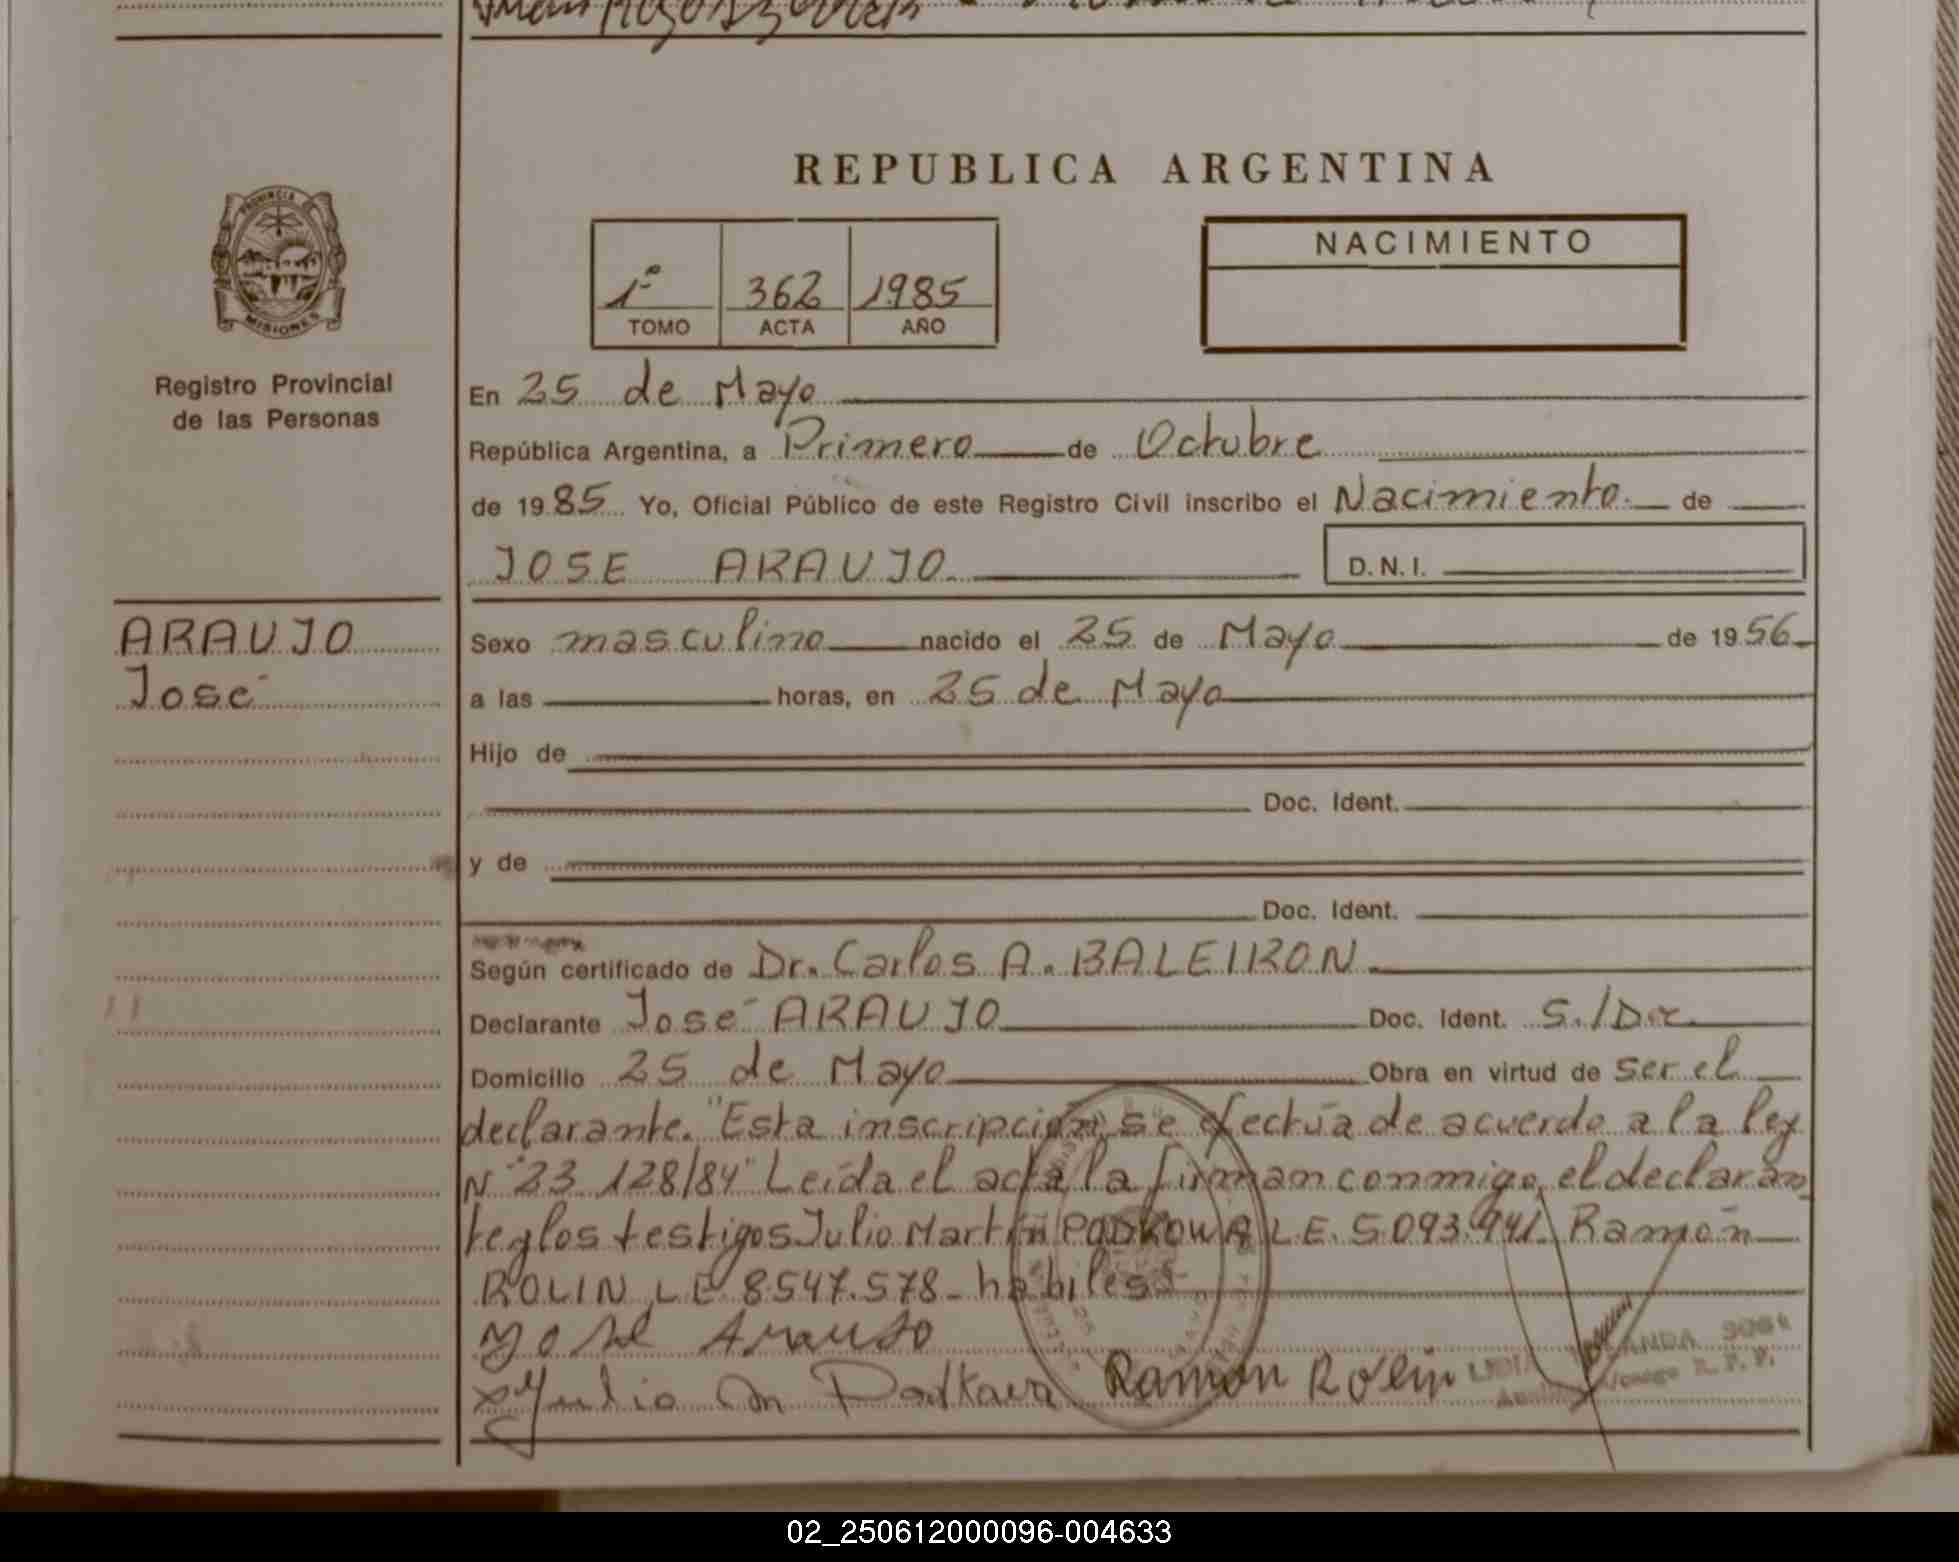 REPUBLICA ARGENTINA
PROVINCIA
MISIONES
Registro Provincial
de las Personas
1º 362 1985
TOMO ACTA AÑO
NACIMIENTO
En 25 de Mayo
República Argentina, a Primero de Octubre
de 1985 Yo, Oficial Público de este Registro Civil inscribo el Nacimiento de
JOSE ARAUJO D.N.I.
ARAUJO
José
Sexo masculino nacido el 25 de Mayo de 1956
a las horas, en 25 de Mayo
Hijo de
Doc. Ident.
y de
Doc. Ident.
Según certificado de Dr. Carlos A. BALEIRON
Declarante José ARAUJO Doc. Ident. S./Dc.
Domicilio 25 de Mayo Obra en virtud de ser el
declarante. "Esta inscripción se efectúa de acuerdo a la ley
Nº 23.128/84" Leída el acta la firman conmigo, el declaran
te y los testigos Julio Martín PODKOWA L.E. 5.093.941 Ramón
ROLIN L.E. 8.547.578 - habiles
José Araujo
Julio M Podkowa Ramon Rolin
02_250612000096-004633